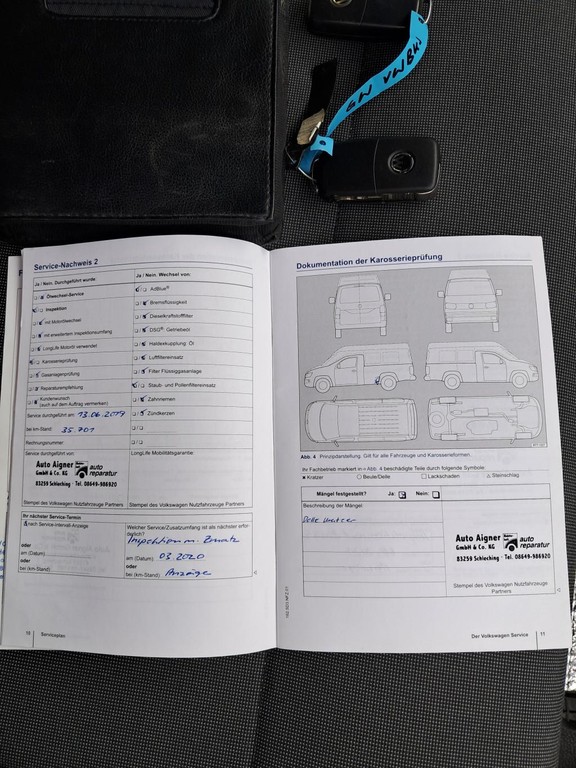 GW VWBKJ
Service-Nachweis 2
Ja / Nein. Durchgeführt wurde:
Ölwechsel-Service
Inspektion
mit Motorölwechsel
mit erweitertem Inspektionsumfang
LongLife Motoröl verwendet
Karosserieprüfung
Gasanlagenprüfung
Reparaturempfehlung
Kundenwunsch
(auch auf dem Auftrag vermerken)
Service durchgeführt am: 13.06.2019
bei km-Stand: 35.701
Rechnungsnummer:
Service durchgeführt von:
Auto Aigner
GmbH & Co. KG
auto
reparatur
83259 Schleching · Tel. 08649-986920
Stempel des Volkswagen Nutzfahrzeuge Partners
Ja / Nein. Wechsel von:
AdBlue®
Bremsflüssigkeit
Dieselkraftstofffilter
DSG®: Getriebeöl
Haldexkupplung: Öl
Luftfiltereinsatz
Filter Flüssiggasanlage
Staub- und Pollenfiltereinsatz
Zahnriemen
Zündkerzen
LongLife Mobilitätsgarantie:
Stempel des Volkswagen Nutzfahrzeuge Partners
Ihr nächster Service-Termin
nach Service-Intervall-Anzeige
oder
am (Datum):
oder
bei (km-Stand):
Welcher Service/Zusatzumfang ist als nächster erforderlich?
Inspektion m. Zusatz
am (Datum): 03.2020
oder
bei (km-Stand): Anzeige
10 Serviceplan
Dokumentation der Karosserieprüfung
Abb. 4 Prinzipdarstellung. Gilt für alle Fahrzeuge und Karosserieformen.
Ihr Fachbetrieb markiert in » Abb. 4 beschädigte Teile durch folgende Symbole:
× Kratzer ○ Beule/Delle □ Lackschaden △ Steinschlag
Mängel festgestellt? Ja: Nein:
Beschreibung der Mängel
Auto Aigner
GmbH & Co. KG
auto
reparatur
83259 Schleching · Tel. 08649-986920
Stempel des Volkswagen Nutzfahrzeuge
Partners
Der Volkswagen Service 11